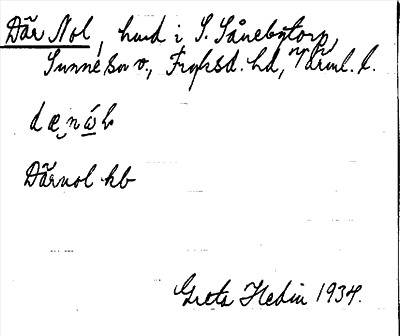 Där Nol, hmd i S. Sånebytorp,
Sunne sn v., Fryksd. hd, Värml. l.
Därnol kb
Greta Hedin 1934.